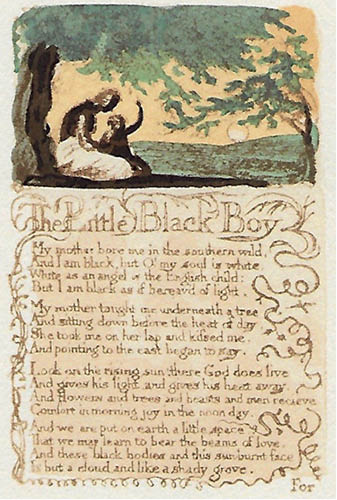 The Little Black Boy
My mother bore me in the southern wild,
And I am black, but O! my soul is white.
White as an angel is the English child:
But I am black as if bereav'd of light.
My mother taught me underneath a tree
And sitting down before the heat of day
She took me on her lap and kissed me,
And pointing to the east began to say.
Look on the rising sun: there God does live
And gives his light, and gives his heat away.
And flowers and trees and beasts and men recieve
Comfort in morning joy in the noon day.
And we are put on earth a little space
That we may learn to bear the beams of love.
And these black bodies and this sun-burnt face
Is but a cloud, and like a shady grove.
For